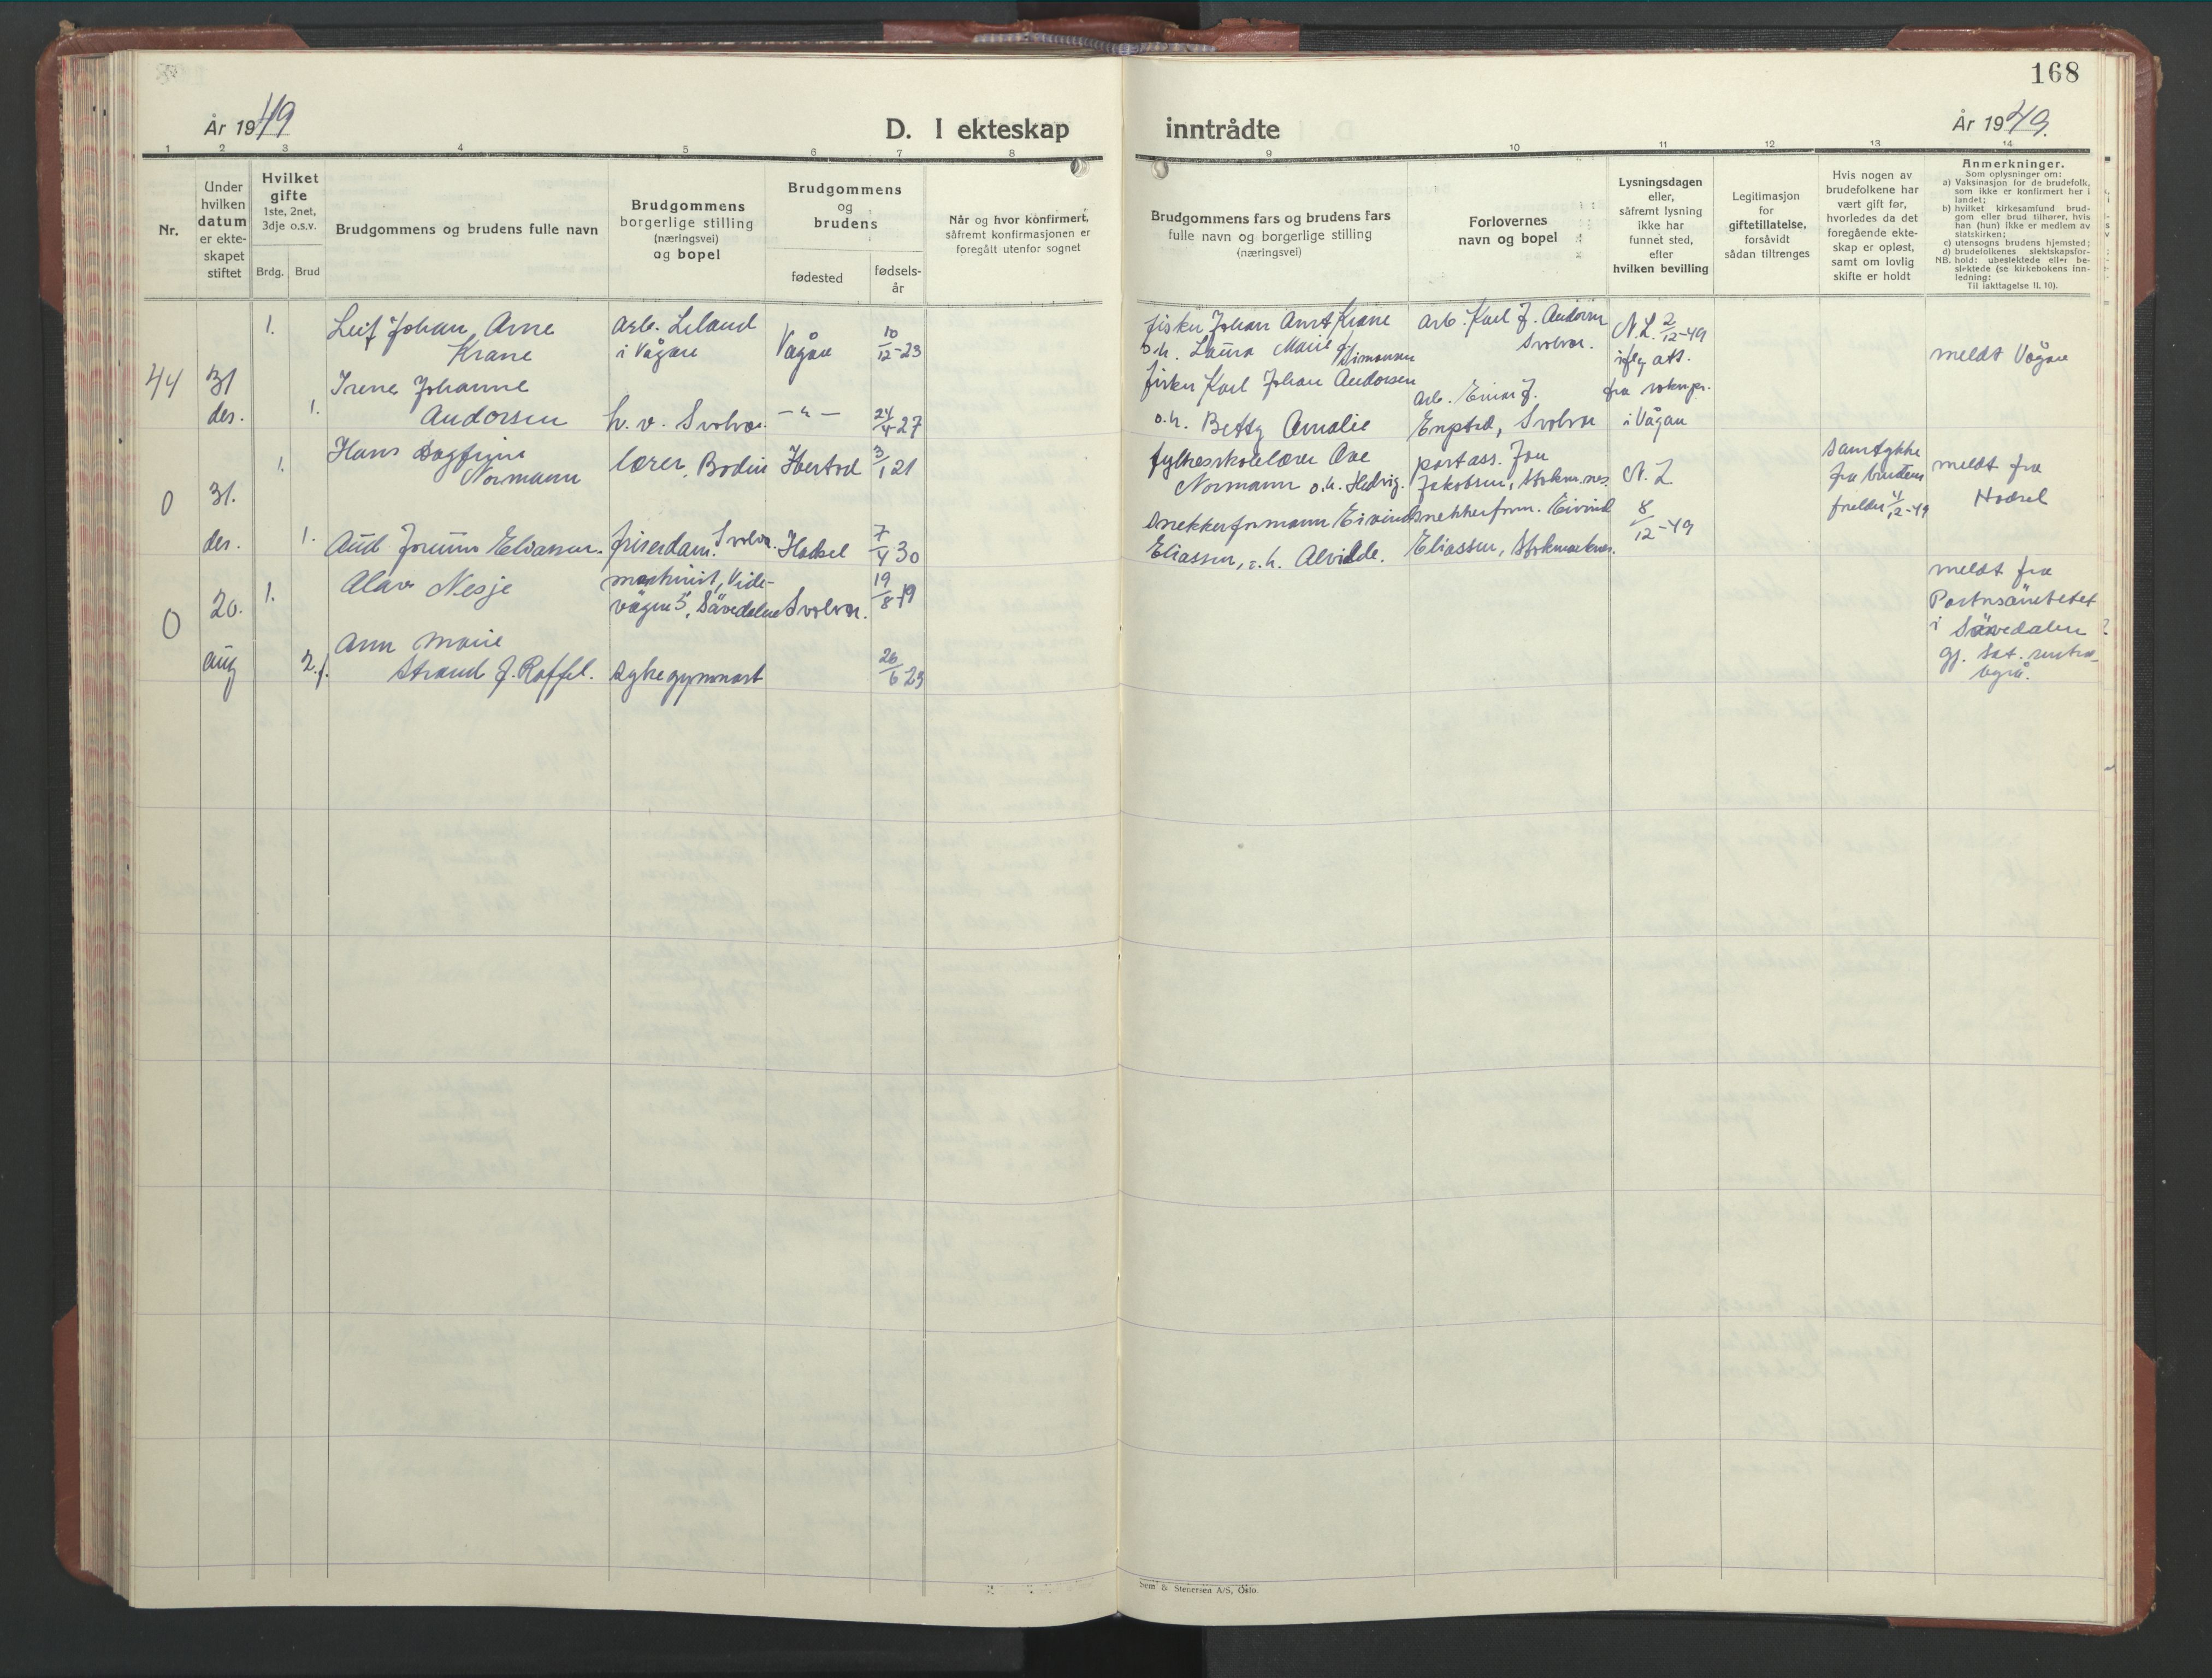 168
År 1949
D. I ekteskap
inntrådte
År 1949.
1 2 3 4 5 6 7 8 9 10 11 12 13 14
Nr.
Under
hvilken
datum
er ekte-
skapet
stiftet
Hvilket
gifte
1ste, 2net,
3dje o.s.v.
Brdg. Brud
Brudgommens og brudens fulle navn
Brudgommens
borgerlige stilling
(næringsvei)
og bopel
Brudgommens
og
brudens
fødested
fødsels-
år
Når og hvor konfirmert,
såfremt konfirmasjonen er
foregått utenfor sognet
Brudgommens fars og brudens fars
fulle navn og borgerlige stilling
(næringsvei)
Forlovernes
navn og bopel
Lysningsdagen
eller,
såfremt lysning
ikke har
funnet sted,
efter
hvilken bevilling
Legitimasjon
for
giftetillatelse,
forsåvidt
sådan tiltrenges
Hvis nogen av
brudefolkene har
vært gift før,
hvorledes da det
foregående ekte-
skap er opløst,
samt om lovlig
skifte er holdt
Anmerkninger.
Som oplysninger om:
a) Vaksinasjon for de brudefolk,
som ikke er konfirmert her i
landet;
b) hvilket kirkesamfund brud-
gom eller brud tilhører, hvis
han (hun) ikke er medlem av
statskirken;
c) utensogns brudens hjemsted;
d) brudefolkenes slektskapsfor-
NB. hold: ubeslektede eller be-
slektede (se kirkebokens inn-
ledning:
Til iakttagelse II. 10).
44
31
des.
1.
Leif Johan Arne
Krane
arb. Leland
i Vågan
Vågan
10/12-23
fisker Johan Arnt Krane
o.h. Laura Marie f. Simonsen
arb. Karl J. Andorsen
Svolvær.
N.L. 2/12-49
iflg att.
fra soknepr.
i Vågan
meldt Vågan
1.
Irene Johanne
Andorsen
h. v. Svolvær.
-"-
24/4-27
fisker Karl Johan Andorsen
o.h. Betty Amalie
arb. Einar J.
Svolvær
0
31.
des.
1.
Hans Dagfinn
Normann
lærer, Bodin
3/1 21
fylkesskolelærer Ove
Normann o.h. Hedvig.
postass. Jon
Jakobsen, Stokm.nes.
N. L
8/12-49
Samtykke
fra brudens
foreldre 4/12-49
meldt fra
Hadsel
1.
Aud Jorunn Eliassen.
friserdam. Svolvær.
Hadsel
7/4 30
snekkerformann Eivind
Eliassen, o.h. Alvilde.
snekkerform. Eivind
Eliassen, Stokmarknes.
0
20.
aug
1.
Alav Nesje
maskinist, Vide-
vägen 5, Sävedalen
Svolvær.
19/8-19
meldt fra
Pastorsämbetet
i Sävedalen ?
gj. Stat. sentral-
byrå.
2.
Ann Marie
Strand f. Raffel.
sykegymnast
26/6 23
Sem & Stenersen A/S, Oslo.